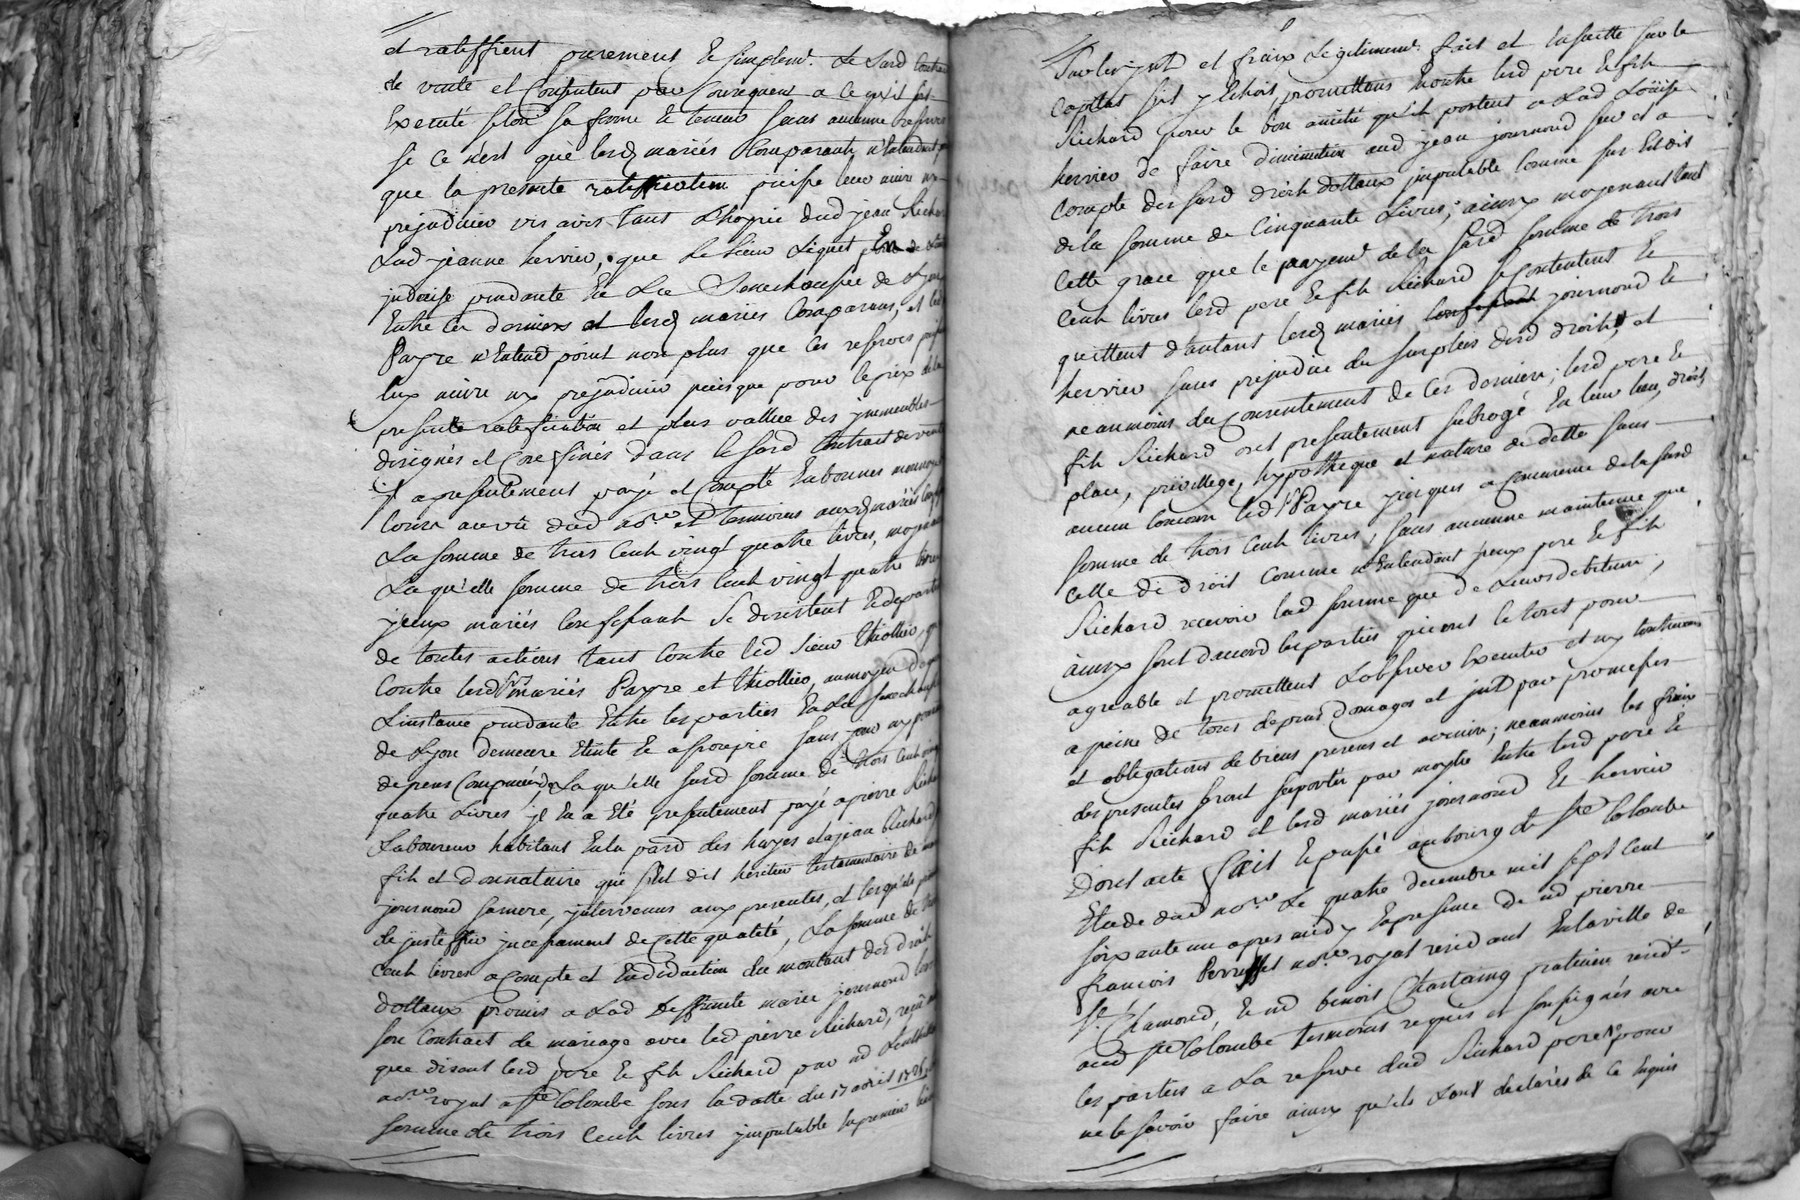 et ratiffient purement et simplemt. le susd contract
de vente et Consentent par Consequent a ce qu'il soit
Executé selon sa forme et teneur sans aucune reserve
si ce n'est que lesd mariés Comparants n'Entendent
que la presente ratiffication puisse leur nuire ny
prejudicier vis avis tant L'hoyrie dud jean Richard
Lad jeanne hervier, que le sieur Liquet
judaise pendante En La Senechaussée de Lyon
Entre Ces derniers et lesd mariés Comparans, et led
Payre n'Entend point non plus que Ces reserves
luy nuire ny prejudicier puisque pour le prix de la
presente ratiffication et plus vallue des jmmeubles
designés et Confinés dans le susd Contract de vente
jl a presentement payé et Compté En bonnes monnoyes
Cours au vû dud nore. et tesmoins auxd mariés
La somme de trois Cent vingt quatre livres, moyenant
La qu'elle somme de trois Cent vingt quatre livres
jceux mariés Confessants se desistent et departent
de toutes actions tant Contre led sieur thiollier, que
Contre lesd mariés Payre et thiollier, au moyen de quoy
L'instance pendante Entre les parties En La senechaussée
de Lyon demeure Eteinte et assoupie sans
depens Compensés, La qu'elle susd somme de trois Cent vingt
quatre Livres jl En a Eté presentement payé a pierre Richard
Laboureur habitant En la pard des hayes et a jean Richard
fils et donnataire que sust dit heritier testamentaire de marie
journoud sa mere, jntervenus aux presentes, et lesquels
de justiffier jncessament de Cette qualité, La somme de trois
Cents livres a Compte et En deduction du montant des droits
dottaux promis a Lad deffunte marie journoud dans
son Contract de mariage avec led pierre Richard, reçu
que disent lesd pere et fils Richard par md
nore. royal a Ste Colombe sous la datte du 17 avril 1726,
somme de trois Cents livres jmputable En premier lieu
sur les jnts et fraix Legitimemt. faits et En suitte sur le
Capital sus y Echois, promettans Entre lesd pere et fils
Richard pour le bon amitié qu'ils portent a Lad Loüise
hervier de faire diminution aud jean journoud sur et a
Compte des susd droits dottaux jmputable Comme sus Est dit
de la somme de Cinquante Livres; ainsy moyenant tout
Cette grace que le payemt de la susd somme de trois
Cents livres lesd pere et fils Richard se Contentent et
quittent d'autant lesd mariés journoud et
hervier sans prejudice du surplus desd droits, et
neanmoins du Consentement de Ces derniers, lesd pere et
fils Richard ont presentement subrogé En leur lieu, droit
place, privillege, hypotheque et nature de dette sans
aucun Concours led Sr Payre jusques a Concurrence de la susd
somme de trois Cents livres, sans aucune maintenue que
celle de droit Comme n'Entendant jceux pere et fils
Richard recevoir lad somme que de Leurs debiteurs,
ainsy sont d'accord les parties qui ont le tout pour
agreable et promettent L'observer Executer et ny Contrevenir
a peine de tous depens Domages et jnts par promesses
et obligations de biens presens et avenir; neanmoins les fraix
des presentes seront suportés par moytié Entre lesd pere et
fils Richard et lesd mariés journoud Et hervier
Dont acte fait et passé au bourg de Ste Colombe
Etude dud nore. Le quatre decembre mil sept Cent
soixante un apres midy En presence de md pierre
francois Perrussel nore. royal residant En la ville de
St. Chamond, et md benoit Chastaing praticien residt.
aud Ste Colombe tesmoins requis et soussignés avec
les parties a La reserve dud Richard pere pour
ne le sçavoir faire ainsy qu'ils L'ont declarés de Ce Enquis